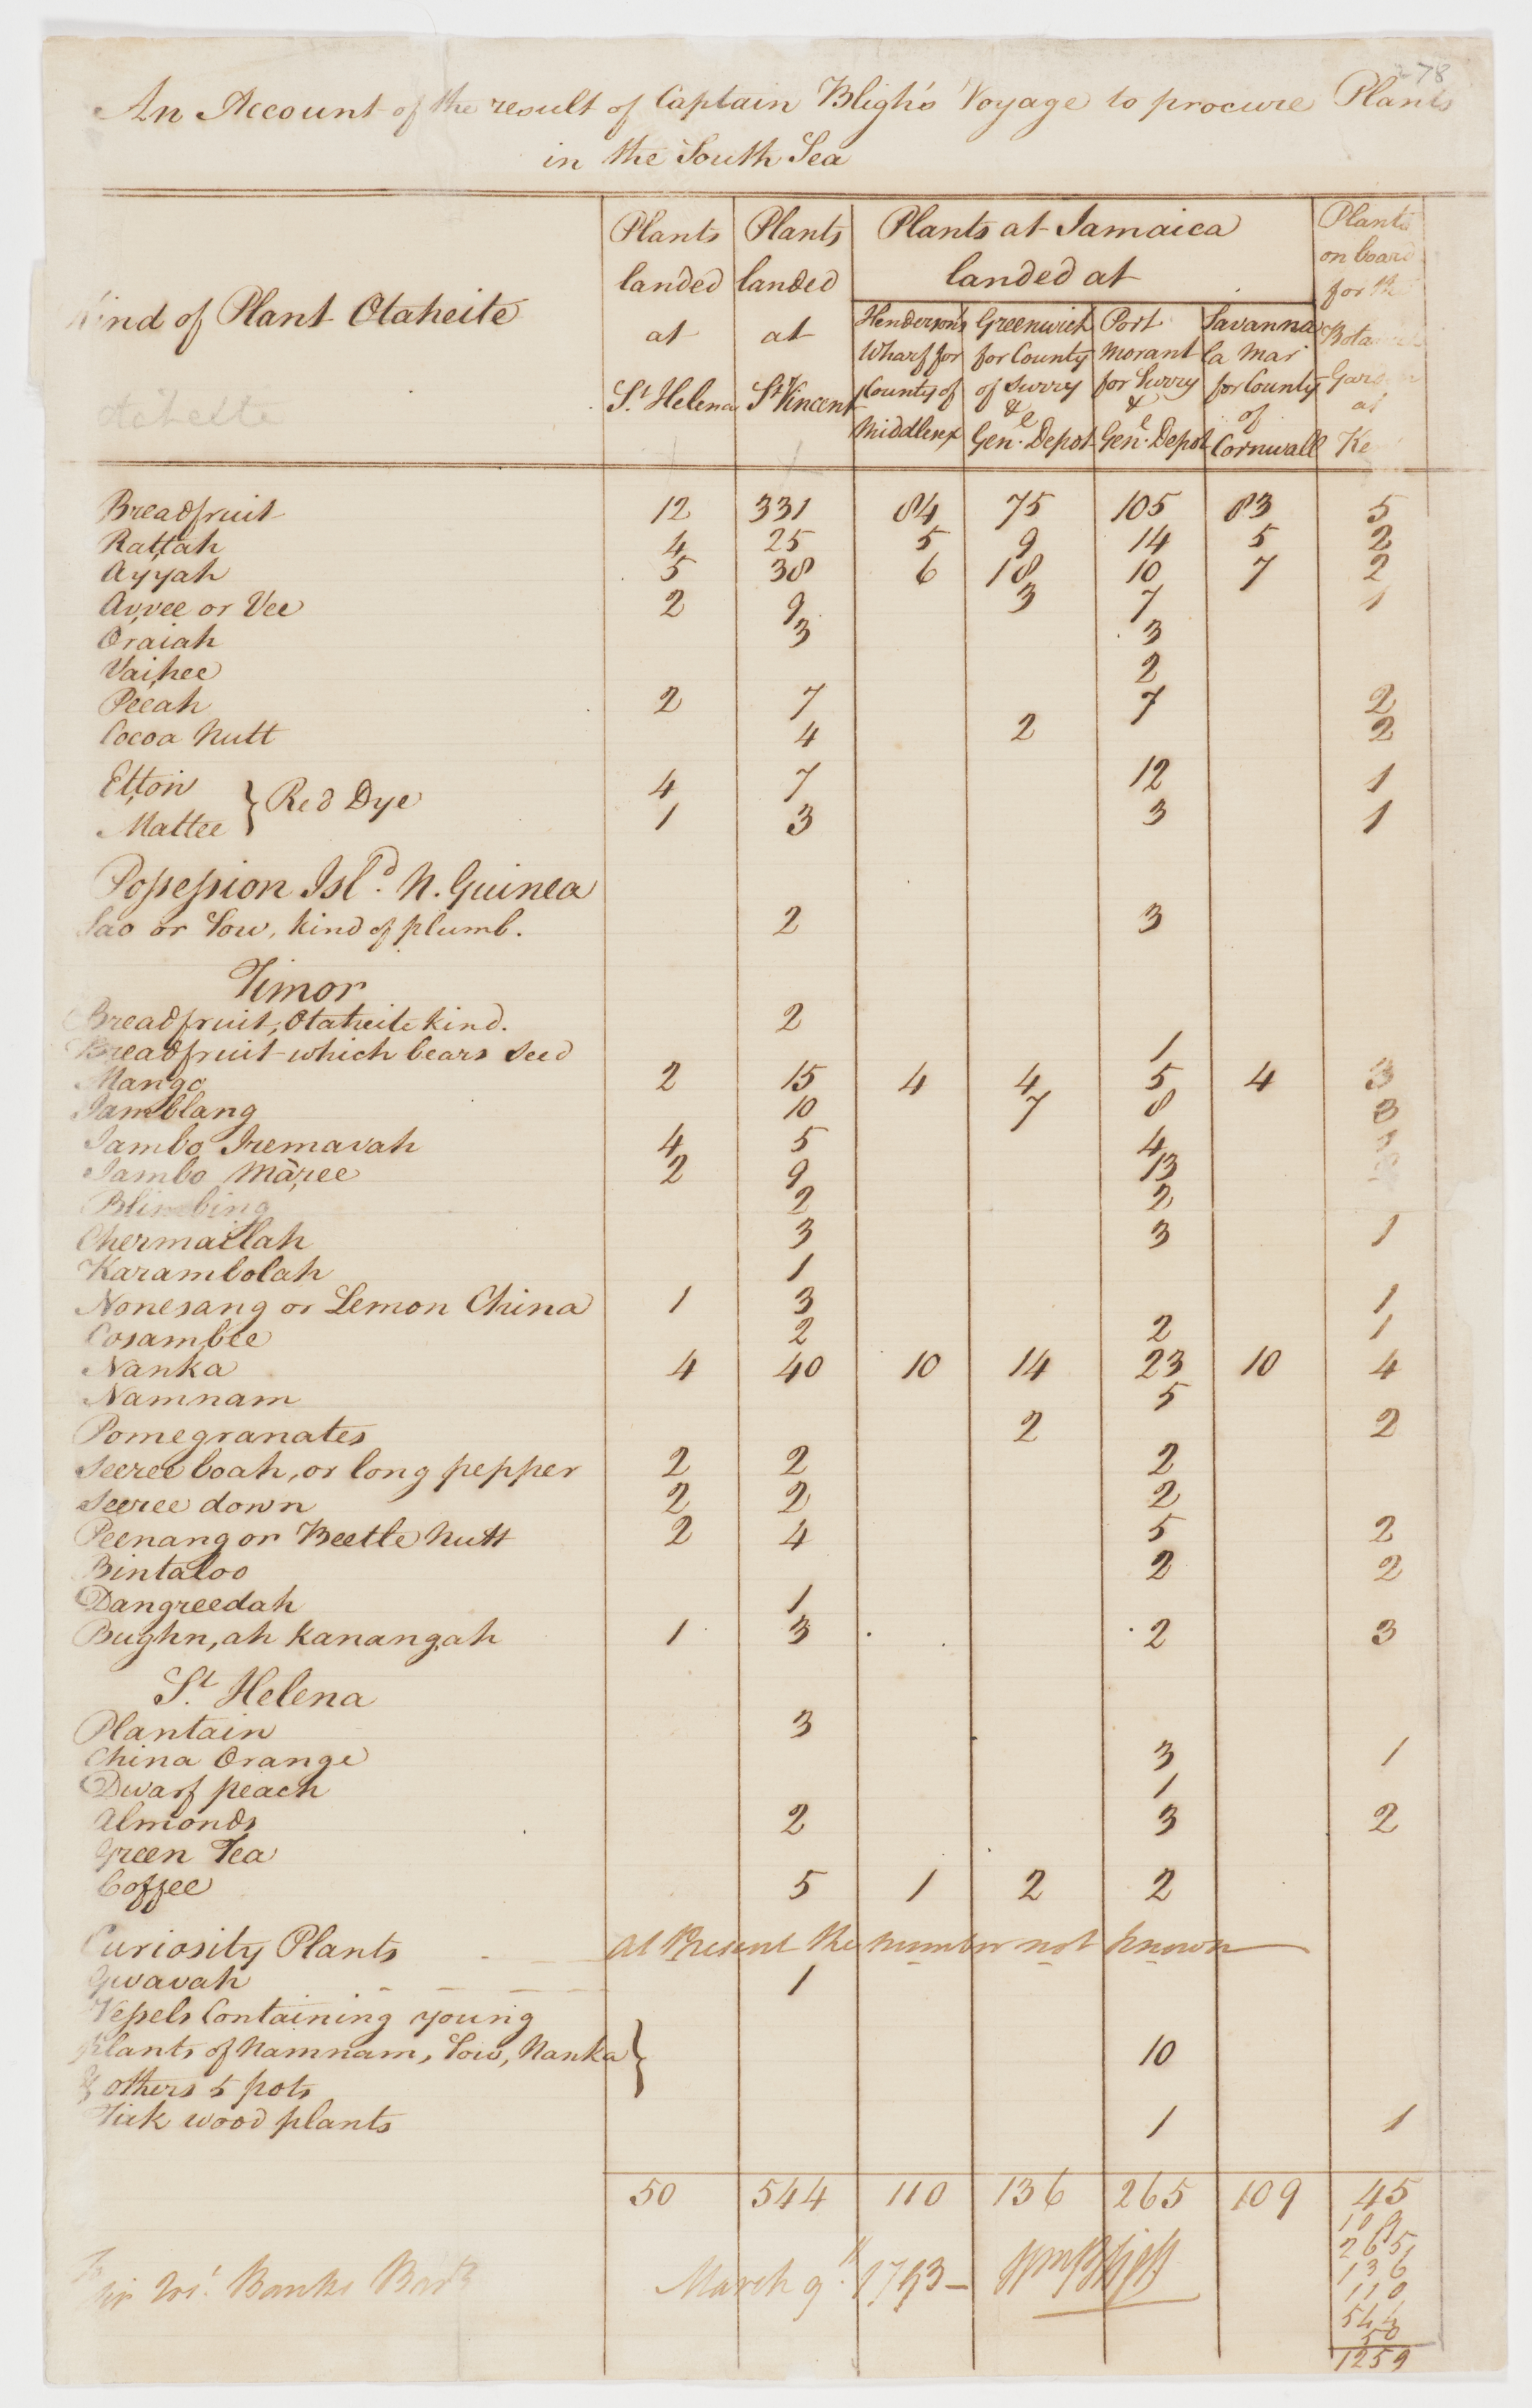 278
An Account of the result of Captain Bligh's Voyage to procure Plants
in the South Sea
Kind of Plant Otaheite
Otaheite
Plants landed at St. Helena
Plants landed at St. Vincent
Plants at Jamaica landed at
Henderson's Wharf for County of Middlesex
Greenwich for County of Surry & Genl. Depot
Port Morant for Surry & Genl. Depot
Savanna la Mar for County of Cornwall
Plants on board for the Botanick Garden at Kew
Breadfruit 12 331 84 75 105 83 5
Rattah 4 25 5 9 14 5 2
Ayyah 5 38 6 18 10 7 2
Avvee or Vee 2 9 3 7 1
Oraiah 3 3
Vaihee 2
Peeah 2 7 7 2
Cocoa Nutt 4 2 2
Ettow 4 7 12 1
} Red Dye
Mattee 1 3 3 1
Possession Isld. N. Guinea
Sao or Sow, kind of plumb. 2 3
Timor
Breadfruit, Otaheite kind. 2
Breadfruit which bears seed 1
Mango 2 15 4 4 5 4 3
Jamblang 10 7 8 3
Jambo Iremavah 4 5 4
Jambo Maree 2 9 13
Blimbing 2 2
Chermallah 3 3 1
Karambolah 1
Nonesang or Lemon China 1 3 1
Cosambee 2 2 1
Nanka 4 40 10 14 23 10 4
Namnam 5
Pomegranates 2 2
Seeree boah, or long pepper 2 2 2
Seeree down 2 2 2
Peenang or Beetle Nutt 2 4 5 2
Bintaloo 2 2
Dangreedah 1
Bughn, ah Kanangah 1 3 2 3
St. Helena
Plantain 3
China Orange 3 1
Dwarf peach 1
Almonds 2 3 2
Green Tea
Coffee 5 1 2 2
Curiosity Plants at Present the number not known
Gwavah 1
Vessels Containing young
plants of Namnam, Sow, Nanka } 10
& others 5 pots
Tiek wood plants 1 1
50 544 110 136 265 109 45
109
265
136
110
544
50
1259
To
Sir Jos. Banks Bart
March 9th. 1793 – Wm Bligh